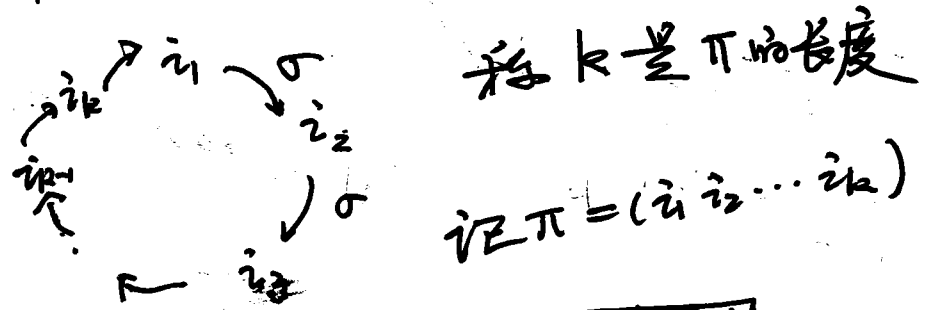 i₁ σ
i₂
σ
i₃
iₖ₋₁
iₖ
称 k 是 π 的长度
记 π = (i₁ i₂ ⋯ iₖ)